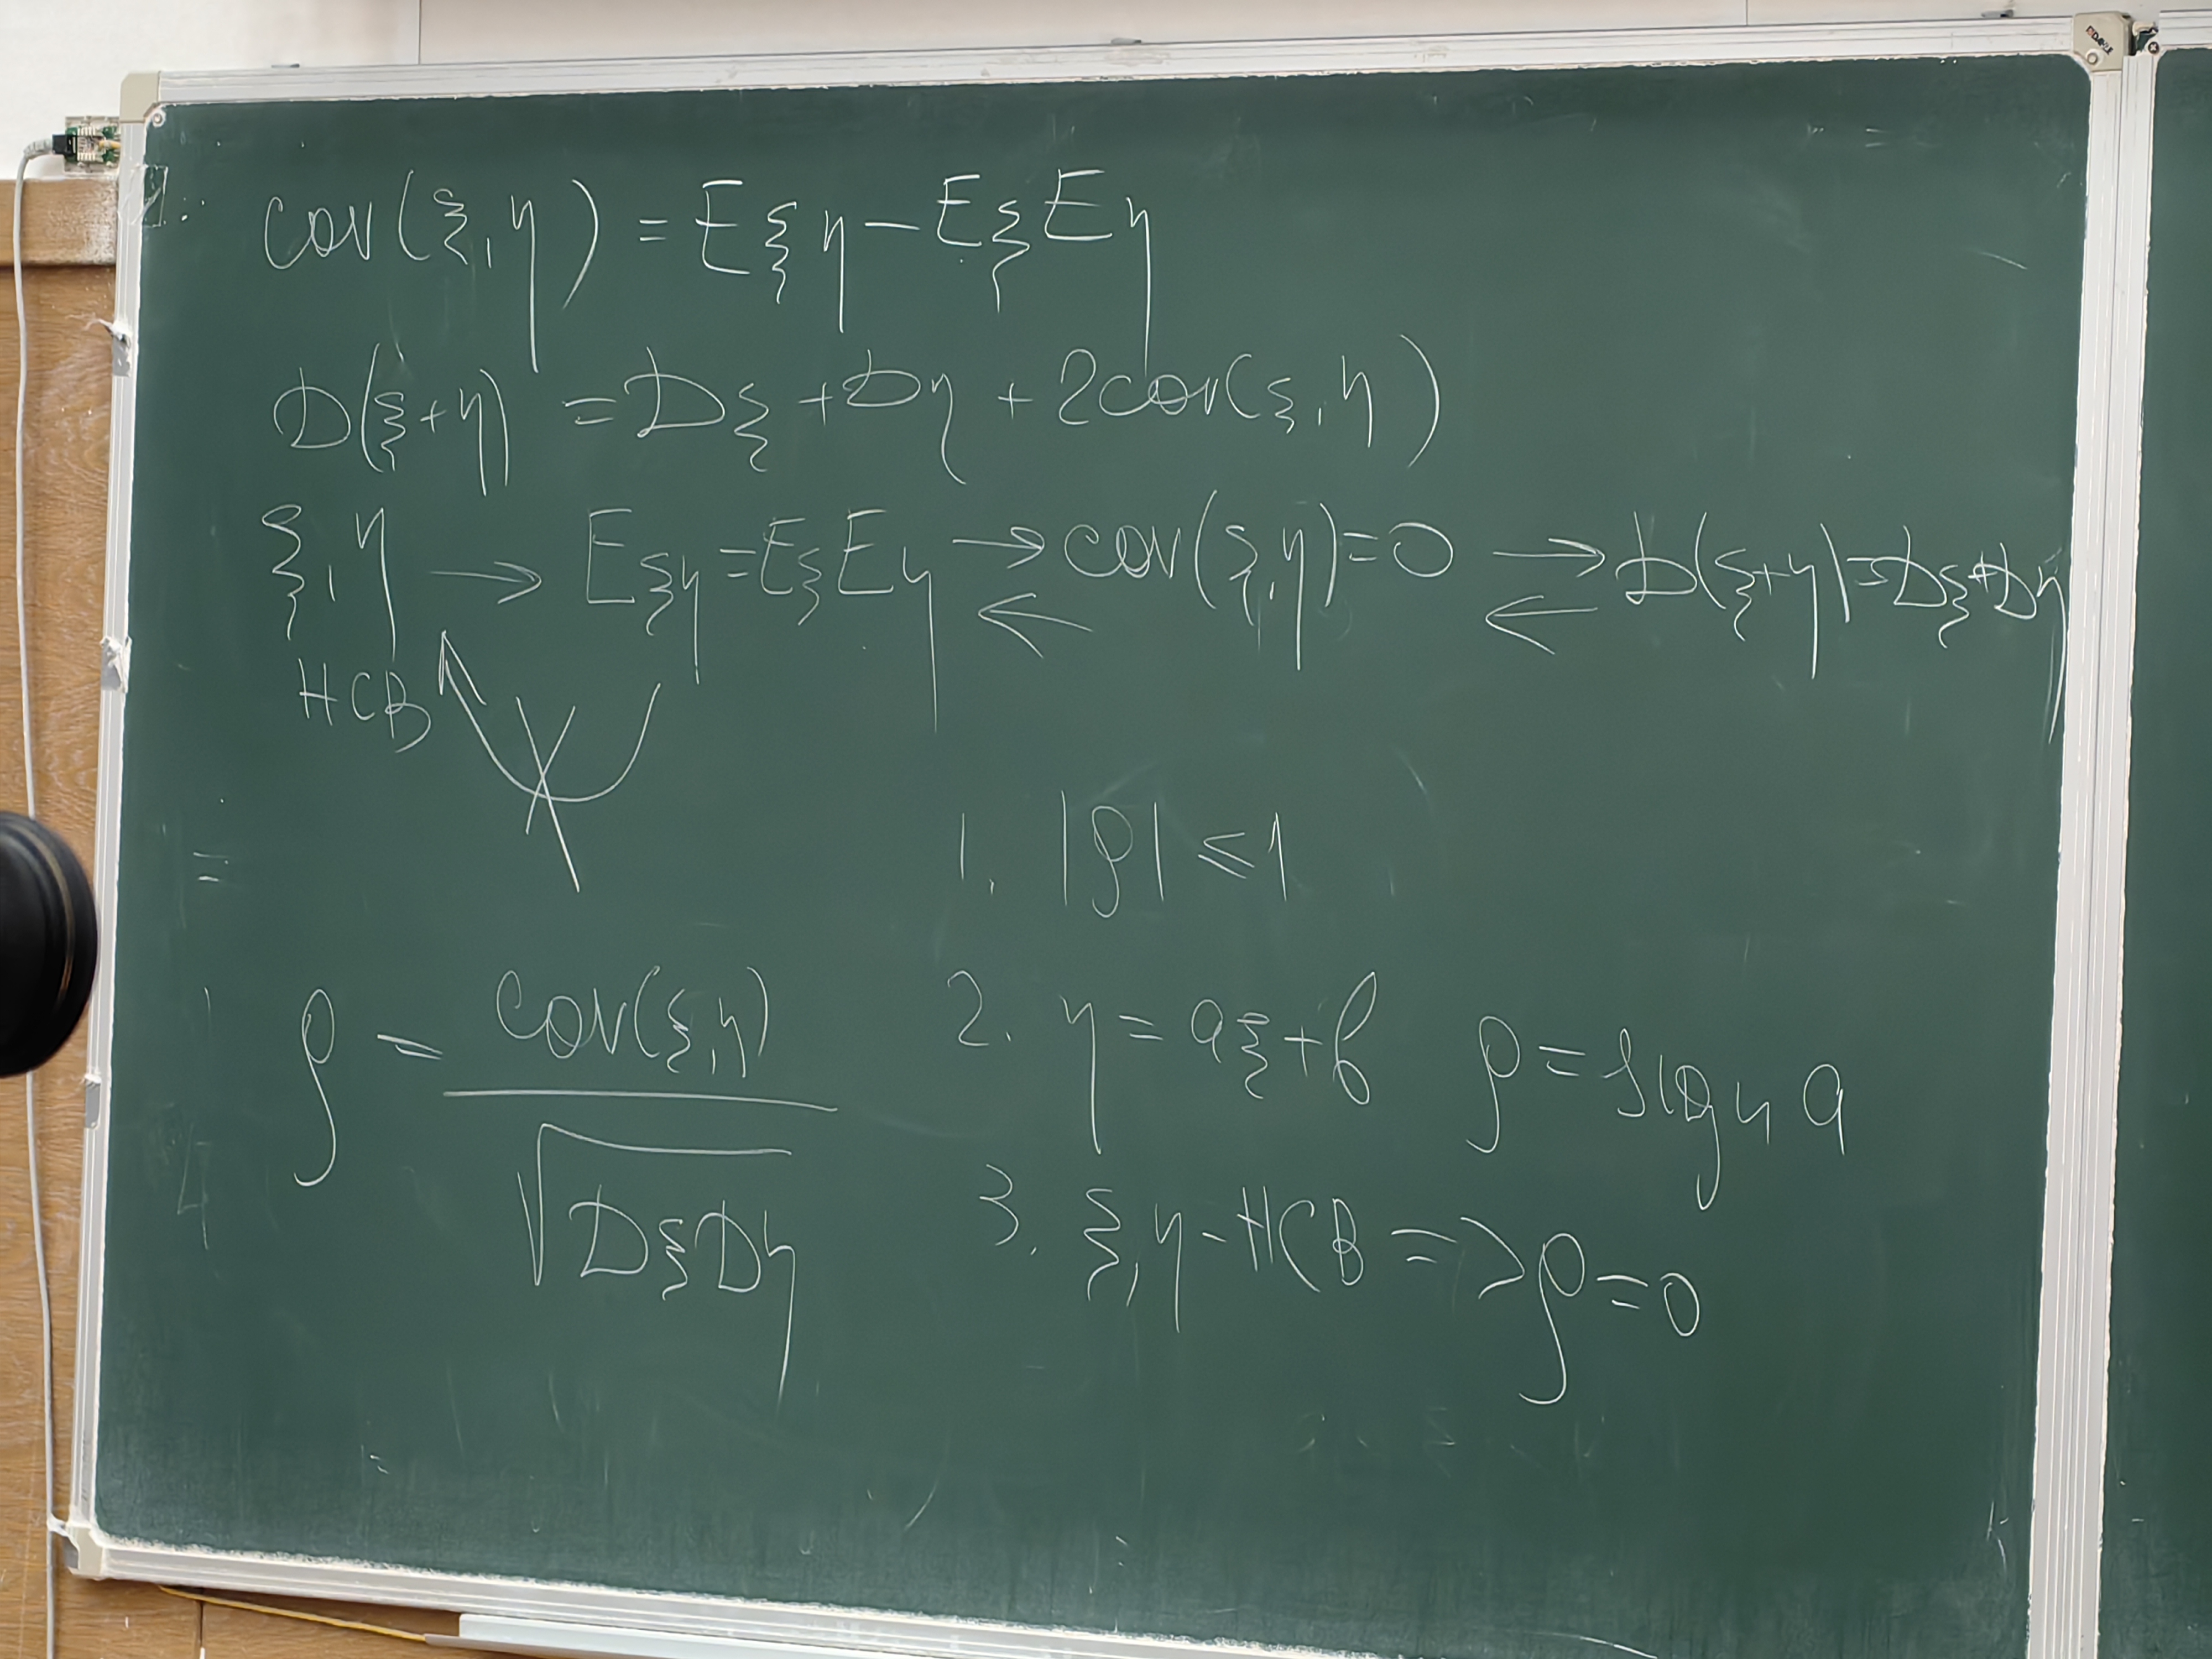 cov(ξ,η) = Eξη − EξEη
D(ξ+η) = Dξ + Dη + 2cov(ξ,η)
ξ,η → Eξη = EξEη → cov(ξ,η) = 0 → D(ξ+η) = Dξ + Dη
← ←
НСВ
1. |ρ| ≤ 1
ρ = cov(ξ,η) / √DξDη
2. η = aξ + b ρ = sign a
3. ξ,η − НСВ => ρ = 0